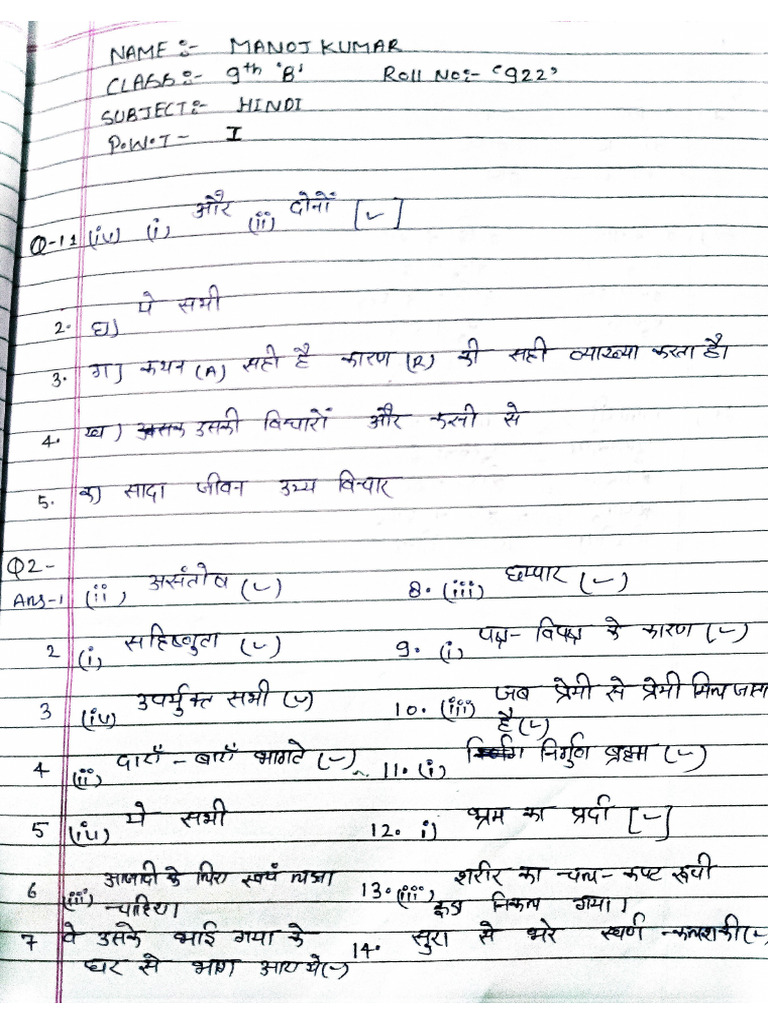 NAME :- MANOJ KUMAR
CLASS :- 9th 'B' Roll No:- '922'
SUBJECT:- HINDI
P.W.T - I
Q-1 1 (iv) (i) और (ii) दोनों [~]
2. घ) ये सभी
3. ग) कथन (A) सही है कारण (R) की सही व्याख्या करता है।
4. ख) उसकी विचारों और करनी से
5. क) सादा जीवन उच्च विचार
Q2-
Ans-1 (ii) असंतोष (~)
2 (i) सहिष्णुता (~)
3 (iv) उपर्युक्त सभी (~)
4 (ii) दाएँ - बाएँ भागते (~)
5 (iv) ये सभी
6 (iii) आजादी के लिए स्वयं लड़ना
चाहिए।
7 वे उसके भाई गया के
घर से भाग आए थे (~)
8. (iii) छप्पार (~)
9. (i) पक्ष - विपक्ष के कारण (~)
10. (iii) जब प्रेमी से प्रेमी मिल जाता
है (~)
11. (i) निर्गुण ब्रह्म (~)
12. i) भ्रम का पर्दा [~]
13. (iii) शरीर का कपट रूपी
कूड़ा निकल गया।
14. सुरा से भरे स्वर्ण - कलश की (~)